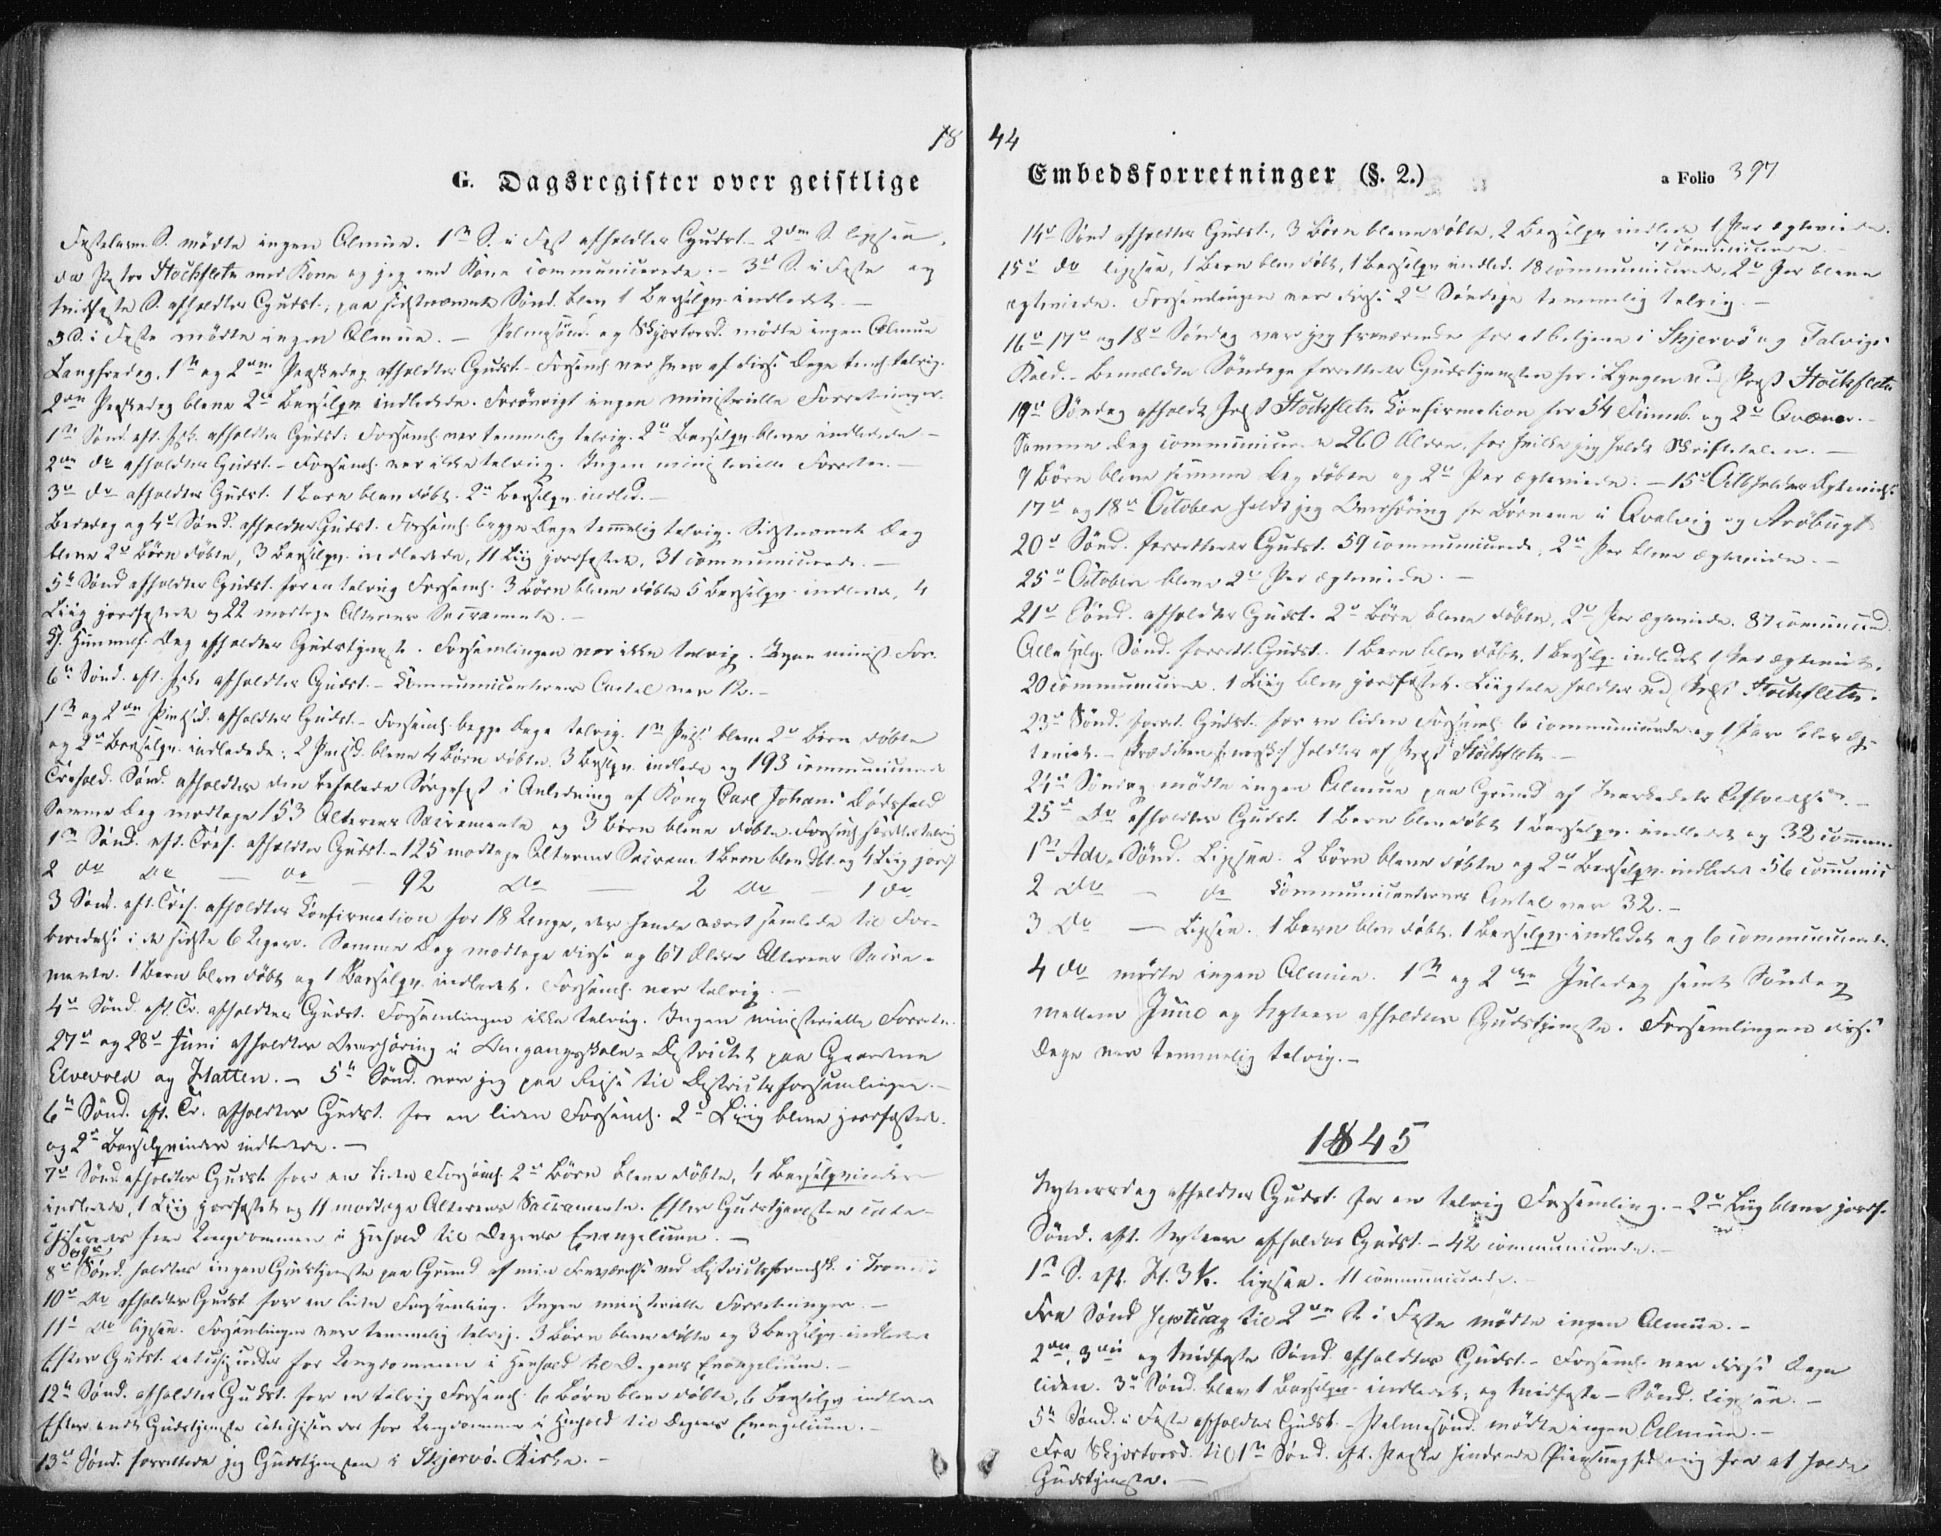 1844
G. Dagsregister over geistlige
Fastelavns S. mødte ingen Almue. 1ste S. i Fast afholdtes Gudst. 2den S. ligesaa,
da Pastor Stockfleth med Kone og jeg med Kone communicerede. – 3die S. i Faste og
Midfaste S. afholdtes Gudst., paa sidstnævnte Sønd. blev 1 Barselqv. indledet. –
S. i Faste mødte ingen Almue. – Palmesønd. og Skjærtorsd. mødte ingen Almue
Langfredag, 1ste og 2den Paaskedag afholdtes Gudst. – Forsaml. var hver af disse Dage teml. talrig.
2den Paaskedag bleve 2de Barselqv. indledede. Forøvrigt ingen ministrielle Forretninger.
1ste Sønd. eft. Psk. afholdtes Gudst. Forsaml. var temmelig talrig. 2de Barselqv. bleve indledede –
2den do afholdtes Gudst. – Forsaml. var ikke talrig. Ingen ministerielle Forretn. –
3die do afholdtes Gudst. 1 Barn blev døbt. 2de Barselqv. indled. –
Bededag og 4de Sønd. afholdtes Gudst. Forsaml. begge Dage temmelig talrig. Sidstnævnte Dag
bleve 2de Børn døbte, 3 Barselqv. indledede, 11 Liig jordfæstet, 31 communicerede. –
5te Sønd afholdtes Gudst. for en talrig Forsaml. 3 Børn bleve døbte 5 Barselqv. indledede, 4
Liig jordfæstede og 22 modtoge Alterens Sacramente. –
Himmelf. Dag afholdtes Gudstjeneste. Forsamlingen var ikke talrig. Ingen minist. For.
6te Sønd. eft. Pske afholdtes Gudst. – Communicanternes Antal var 12. –
1ste og 2den Pintsed. afholdtes Gudst. – Forsaml. begge Dage talrig. 1ste Pints. bleve 2de Børn døbte
og 2de Barselqv. indledede; 2 Pintsd. bleve 4 Børn døbte. 3 Barselqv. indledede og 193 communicerede
Trefold. Sønd. afholdtes den befalede Sørgefest i Anledning af Kong Carl Johans Dødsfald
Samme Dag modtoge 153 Alterens Sacramente og 3 Børn bleve døbte. Forsaml. talrig
1ste Sønd. eft. Tref. afholdtes Gudst. – 125 modtoge Alterens Sacram. 1 Barn blev døbt og 4 Liig jordf.
2 do do – do – 92 do – 2 do – 1 do
3 Sønd. eft. Tref. afholdtes Confirmation for 18 Unge, der havde været samlede til For-
beredelse i de sidste 6 Uger. Samme Dag modtoge disse og 67 Ældre Alterens Sacra-
mente. 1 Barn blev døbt og 1 Barselqv. indledet. Forsaml. var talrig. –
4de Sønd. eft. Tr. afholdtes Gudst. Forsamlingen ikke talrig. Ingen ministerielle Forretn.
27de og 28de Juni afholdtes Overhøring i Omgangsskole-Districtet paa Gaardene
Elvevold og Hatten. – 5te Sønd. var jeg paa Reise til Districtsforsamlingen. –
6te Sønd. eft. Tr. afholdtes Gudst. for en liden Forsaml. 2de Liig bleve jordfæstede
og 2de Barselqvinder indledede. –
7de Sønd. afholdtes Gudst. for en liden Forsaml. 2de Børn bleve døbte, 4 Barselqvinder
indledede, 1 Liig jordfæstet og 11 modtoge Alterens Sacramente. Efter Gudstjenesten cate-
chiseredes for Ungdommen i Henhold til Dagens Evangelium. –
8de Sønd. holdtes ingen Gudstjeneste paa Grund af min Fraværelse ved Districtsforml. i Tromsø
10de do afholdtes Gudst. for en liden Forsamling. Ingen ministerielle Forretninger. –
11te do ligesaa. Forsamlingen var temmelig talrig. 3 Børn bleve døbte og 3 Barselqv. indledede
Efter Gudst. catechiseredes for Ungdommen i Henhold til Dagens Evangelium. –
12te Sønd. afholdtes Gudst. for en talrig Forsaml. 6 Børn bleve døbte, 6 Barselqv. indledede
Efter endt Gudstjeneste catechiseredes for Ungdommen i Henhold til Dagens Evangelium. –
13de Sønd. forrettede jeg Gudstjenesten i Skjervø Kirke. –
Embedsforretninger (§. 2.)
a Folio 397
14de Sønd afholdtes Gudst., 3 Børn bleve døbte, 2 Barselqv. indledede 1 Par ægteviede.
communicerede. –
15de do ligesaa, 1 Barn blev døbt, 1 Barselqv. indled. 18 communicerede, 2de Par bleve
ægteviede. Forsamlingen var disse 2de Søndage temmelig talrig. –
16de 17de og 18de Søndag var jeg fraværende for at betjene i Skjervø og Talvigs
Kald. – Bemældte Søndage forrettedes Gudstjenesten her i Lyngen v. Præst Stockfleth
19de Søndag afholdt Præst Stockfleth Confirmation for 54 Finneb. og 2de Qvæner. –
Samme Dag communicerede 260 Ældre, for hvilke jeg holdt Skriftetalen. –
9 Børn bleve samme Dag døbte og 2de Par ægteviede. – 15de Octbr holdtes
17de og 18de October holdt jeg Overhøring for Børnene i Qvalvig og Arøbugt
20de Sønd. forrettedes Gudst. 59 communicerede, 2de Par bleve ægteviede. –
25de October bleve 2de Par ægteviede. –
21de Sønd. afholdtes Gudst. 2de Børn bleve døbte, 2de Par ægteviede. 87 communicered.
Alle Helg. Sønd. forrett. Gudst. 1 Barn blev døbt, 1 Barselqv. indledet 1 Par ægteviet.
20 communicerede. 1 Liig blev jordfæstet. Liigtale holdtes ved Præst Stockfleth.
23de Sønd. forret. Gudst. for en liden Forsaml. 6 communicerede og 1 Par blev æg-
teviet. – Prædiken holdtes af Præst Stockfleth –
24de Søndag mødte ingen Almue paa Grund af Markedets Afholdelse. –
25de do afholdtes Gudst. 1 Barn blev døbt 1 Barselqv. indledet og 32 commun.
1ste Adv. Sønd. Ligesaa. 2 Børn bleve døbte og 2de Barselqv. indledede 56 communic
2 do – do Communicanternes Antal var 32. –
3 do – Ligesaa. 1 Barn blev døbt. 1 Barselqv. indledet og 6 communicerede.
4 do mødte ingen Almue. 1ste og 2den Juledag samt Søndag
mellem Juul og Nytaar afholdtes Gudstjeneste. Forsamlingen disse
Dage var temmelig talrig. –
1845
Nytaarsdag afholdtes Gudst. for en talrig Forsamling. – 2de Liig bleve jordf.
Sønd. eft. Nytaar afholdtes Gudst. – 42 communicerede. –
1ste S. eft. H. 3 K. ligesaa. 11 communicerede. –
Fra Sønd Septuag til 2den S. i Faste mødte ingen Almue. –
2den, 3die og Midfaste Sønd. afholdtes Gudst. – Forsaml. var disse Dage
liden. 3die Sønd. blev 1 Barselqv. indledet, og Midfaste-Sønd. ligesaa. –
5te Sønd. i Faste afholdtes Gudst. – Palmesønd. mødte ingen Almue. –
Fra Skjærtorsd. til 1ste Sønd. eft. Paaske hindrede mig fra at holde
Gudstjeneste. –